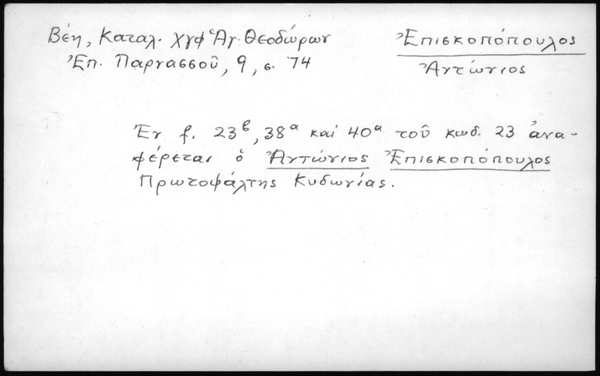 Βέη, Καταλ. χγφ Ἁγ. Θεοδώρων
Ἐπ. Παρνασσοῦ, 9, σ. 74
Ἐπισκοπόπουλος
Ἀντώνιος
Ἐν f. 23β, 38α καὶ 40α τοῦ κωδ. 23 ἀνα-
φέρεται ὁ Ἀντώνιος Ἐπισκοπόπουλος
Πρωτοψάλτης Κυδωνίας.